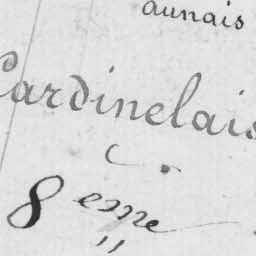 aunais
Cardinelais
8 eme